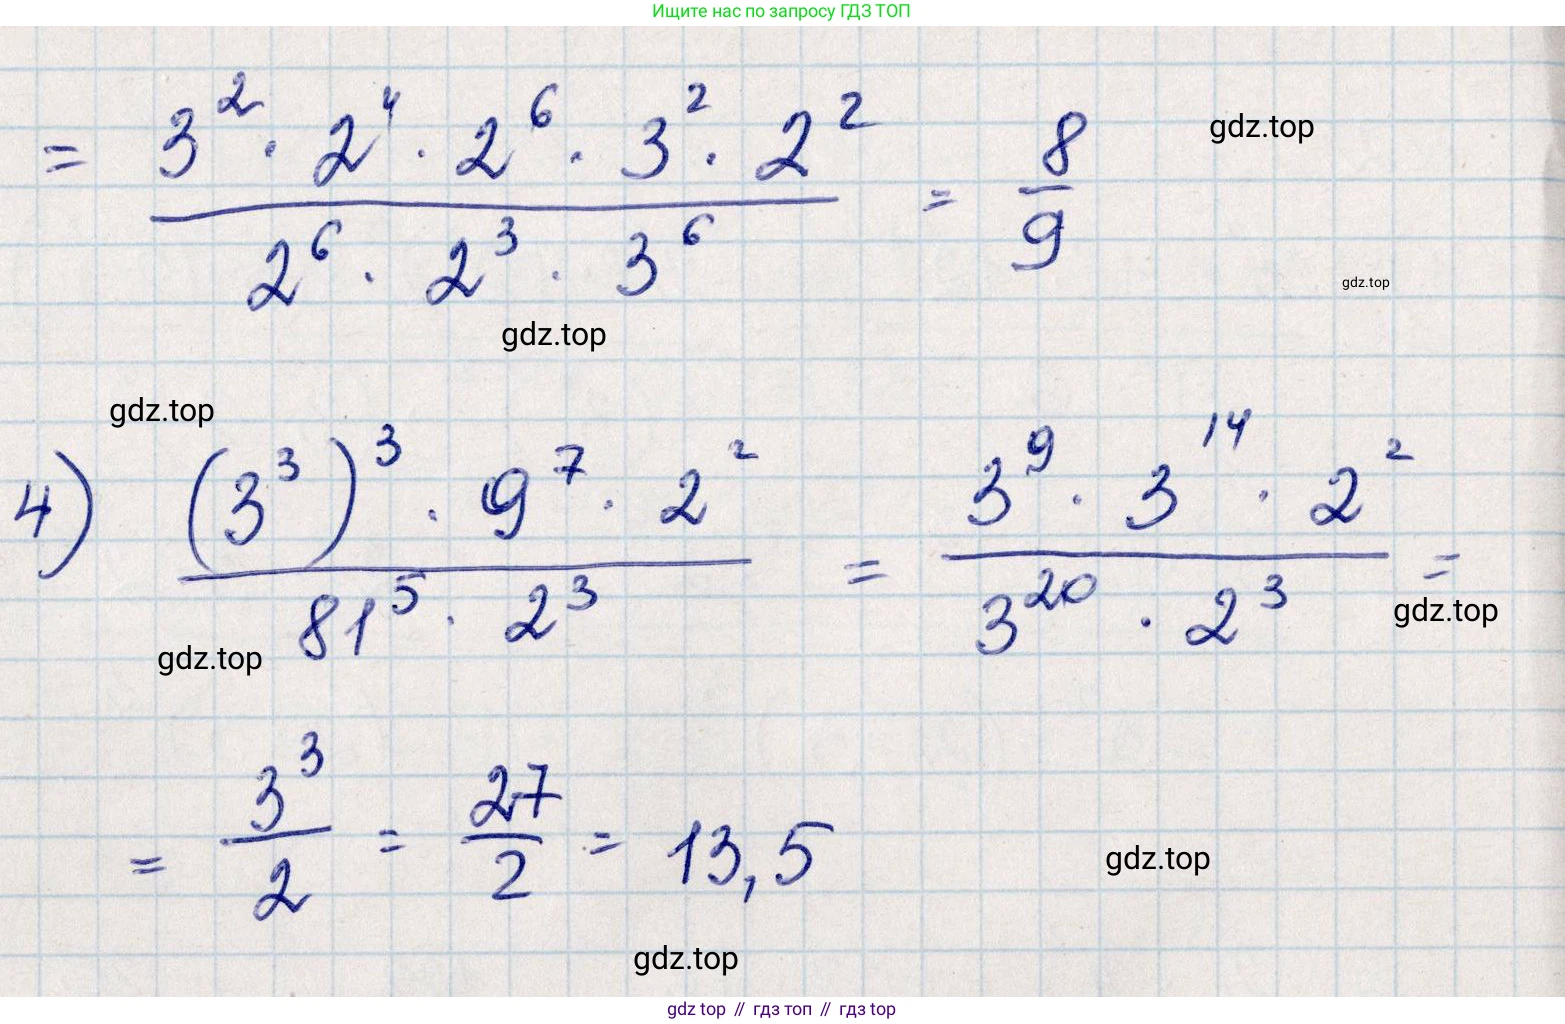 Ищите нас по запросу ГДЗ ТОП
= (3² · 2⁴ · 2⁶ · 3² · 2²) / (2⁶ · 2³ · 3⁶) = 8/9
gdz.top
gdz.top
gdz.top
gdz.top
4) ((3³)³ · 9⁷ · 2²) / (81⁵ · 2³) = (3⁹ · 3¹⁴ · 2²) / (3²⁰ · 2³) =
gdz.top
gdz.top
= 3³/2 = 27/2 = 13,5
gdz.top
gdz.top
gdz top // гдз топ // гдз top